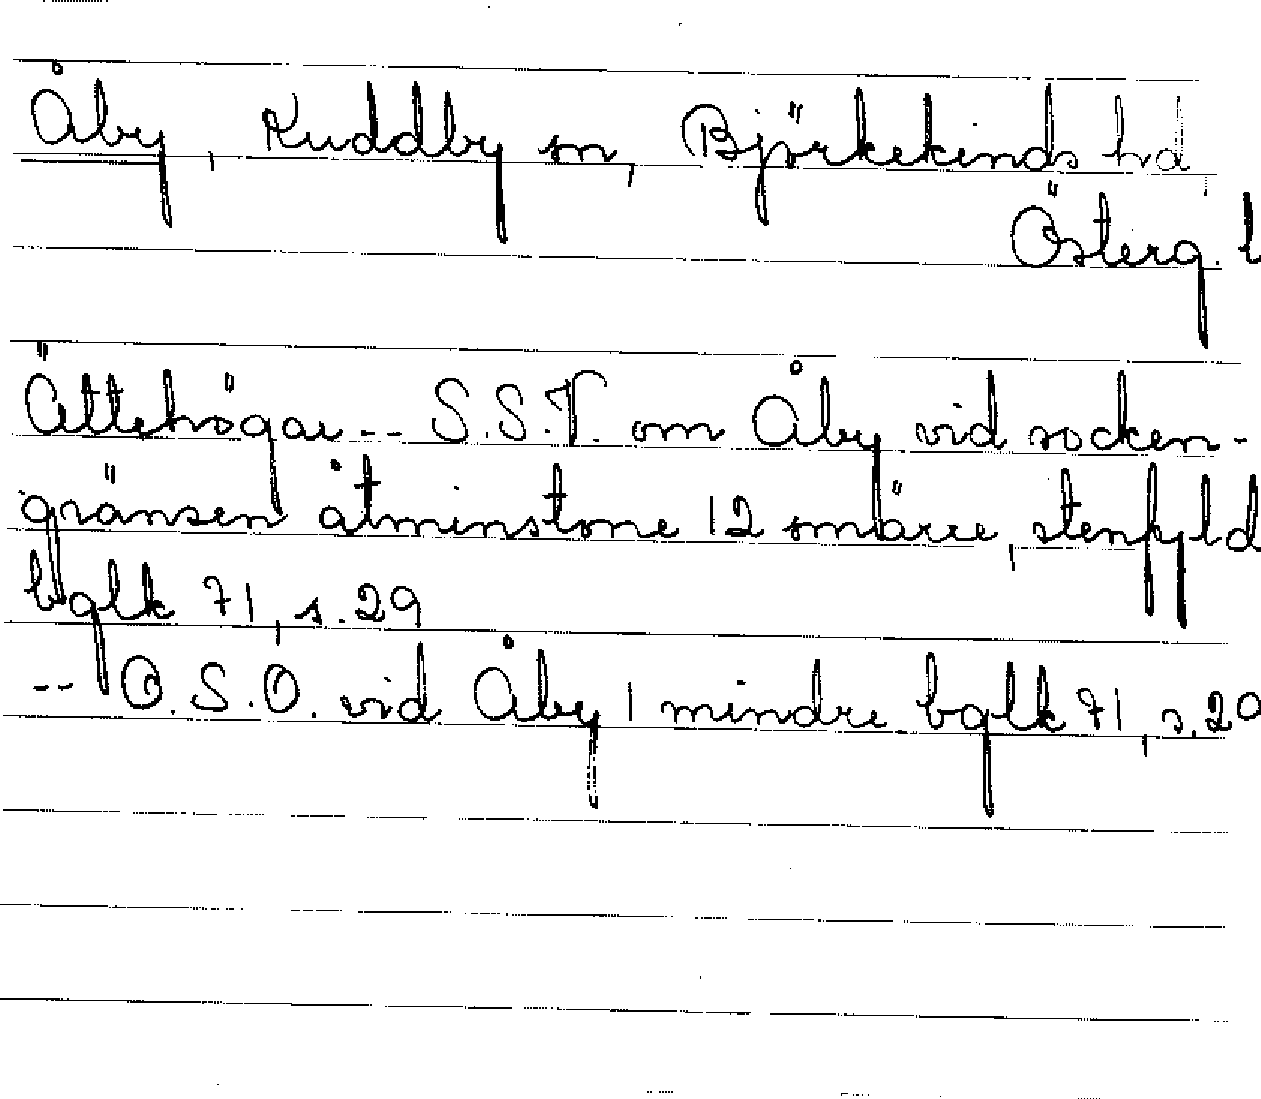 Åby, Kuddby sn, Björkekinds hd,
Österg. l
Ättehögar -- S.S.V. om Åby vid socken-
gränsen åtminstone 12 smärre, stenfyld
bglk 71, s. 29
-- O.S.O. vid Åby 1 mindre bglk 71, s. 29